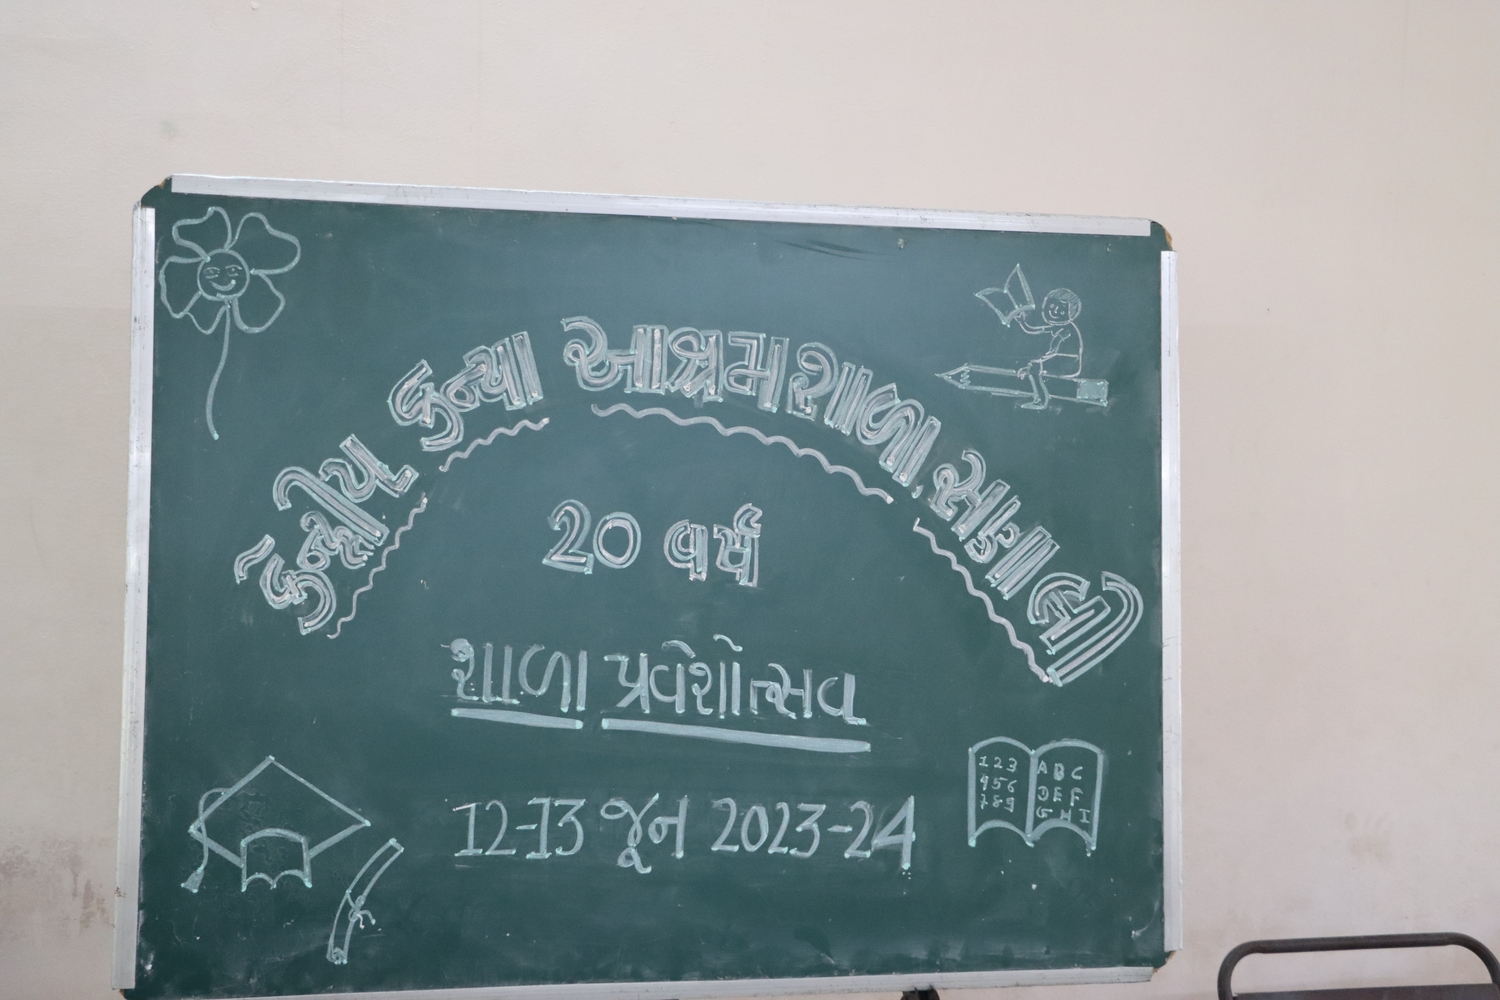 કેન્દ્રીય કન્યા આશ્રમશાળા સાકવા
20 વર્ષ
શાળા પ્રવેશોત્સવ
12-13 જૂન 2023-24
1 2 3
4 5 6
7 8 9
A B C
D E F
G H I